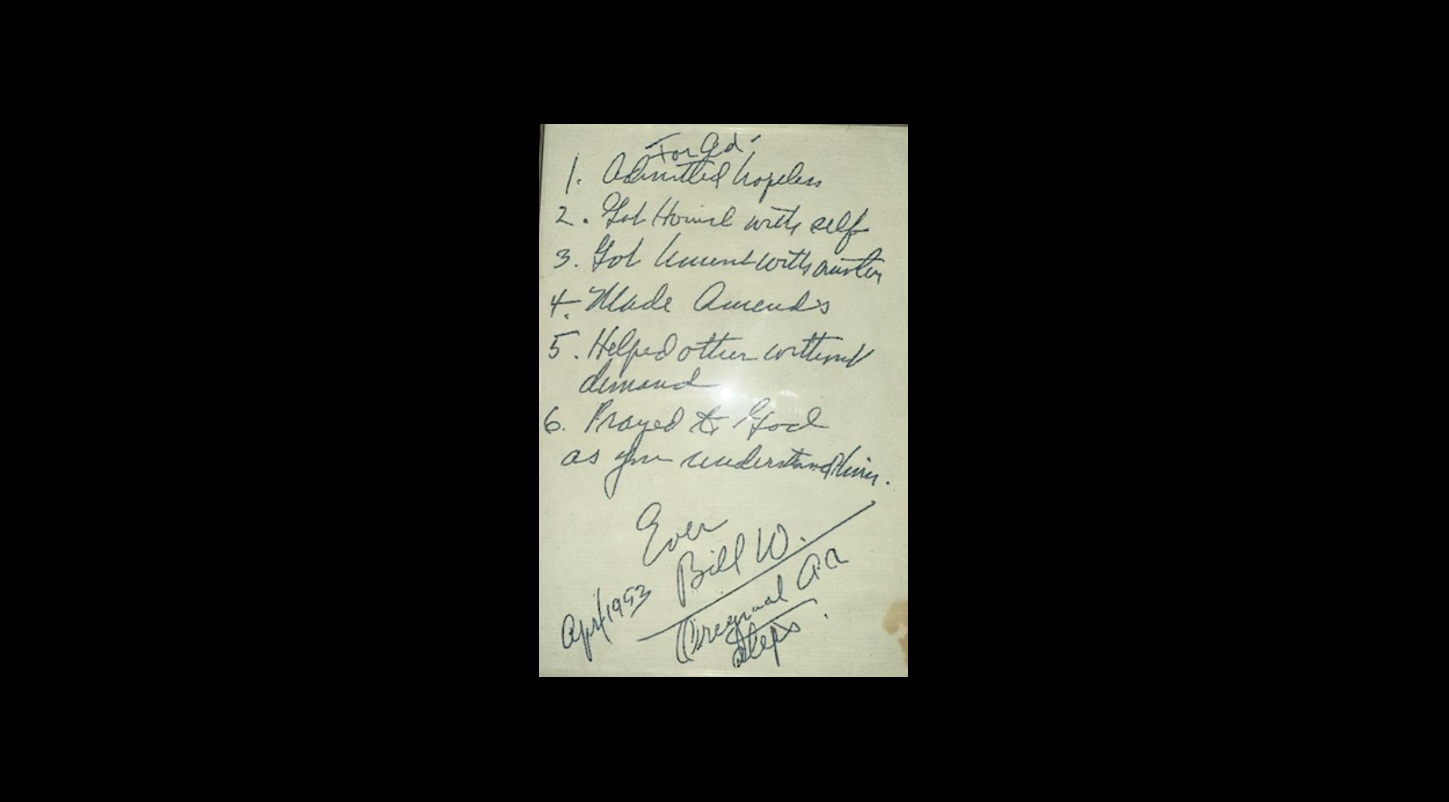 For Ed
1. Admitted hopeless
2. Got Honest with self
3. Got honest with another
4. Made Amends
5. Helped other without
demand
6. Prayed to God
as you understand Him.
Ever
Bill W.
Apr/1953
Original AA
Steps.